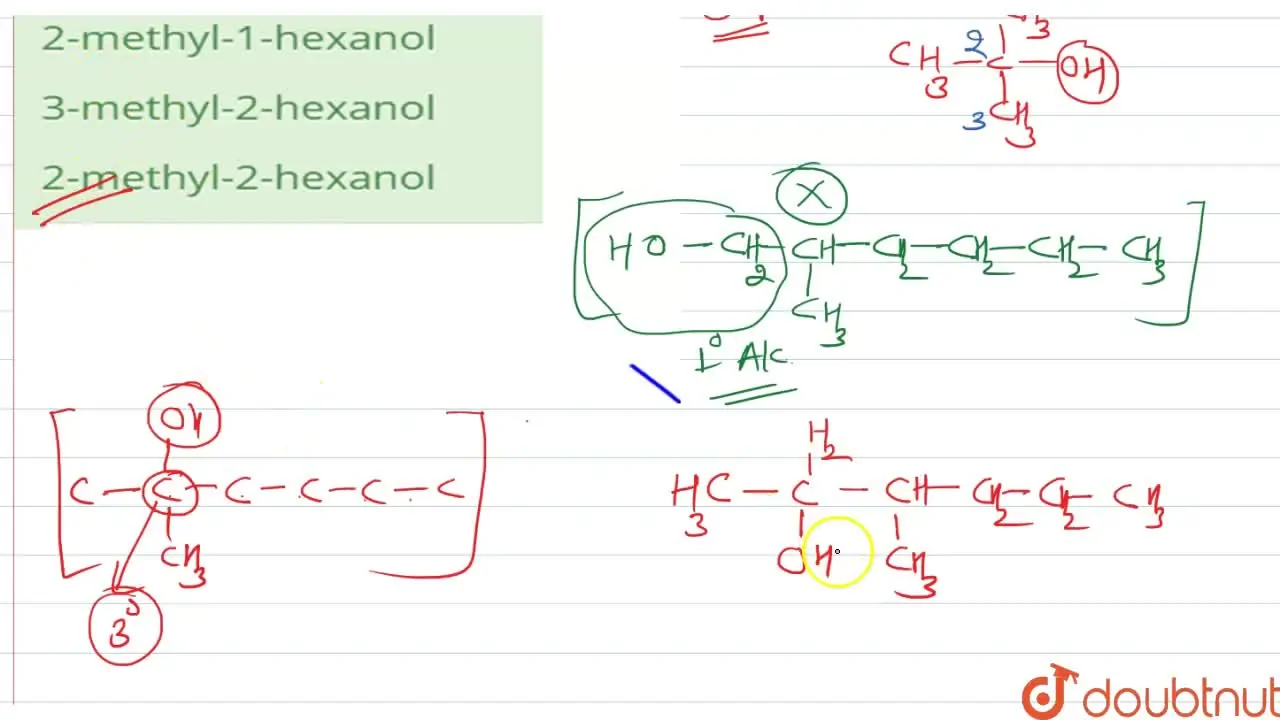 2-methyl-1-hexanol
3-methyl-2-hexanol
2-methyl-2-hexanol
3
CH3 – 2 C – OH
3 CH3
X
HO – CH2 – CH – CH2 – CH2 – CH2 – CH3
CH3
1° Alc.
OH
C – C – C – C – C – C
CH3
3°
H2
H3C – C – CH – CH2 – CH2 – CH3
OH CH3
doubtnut